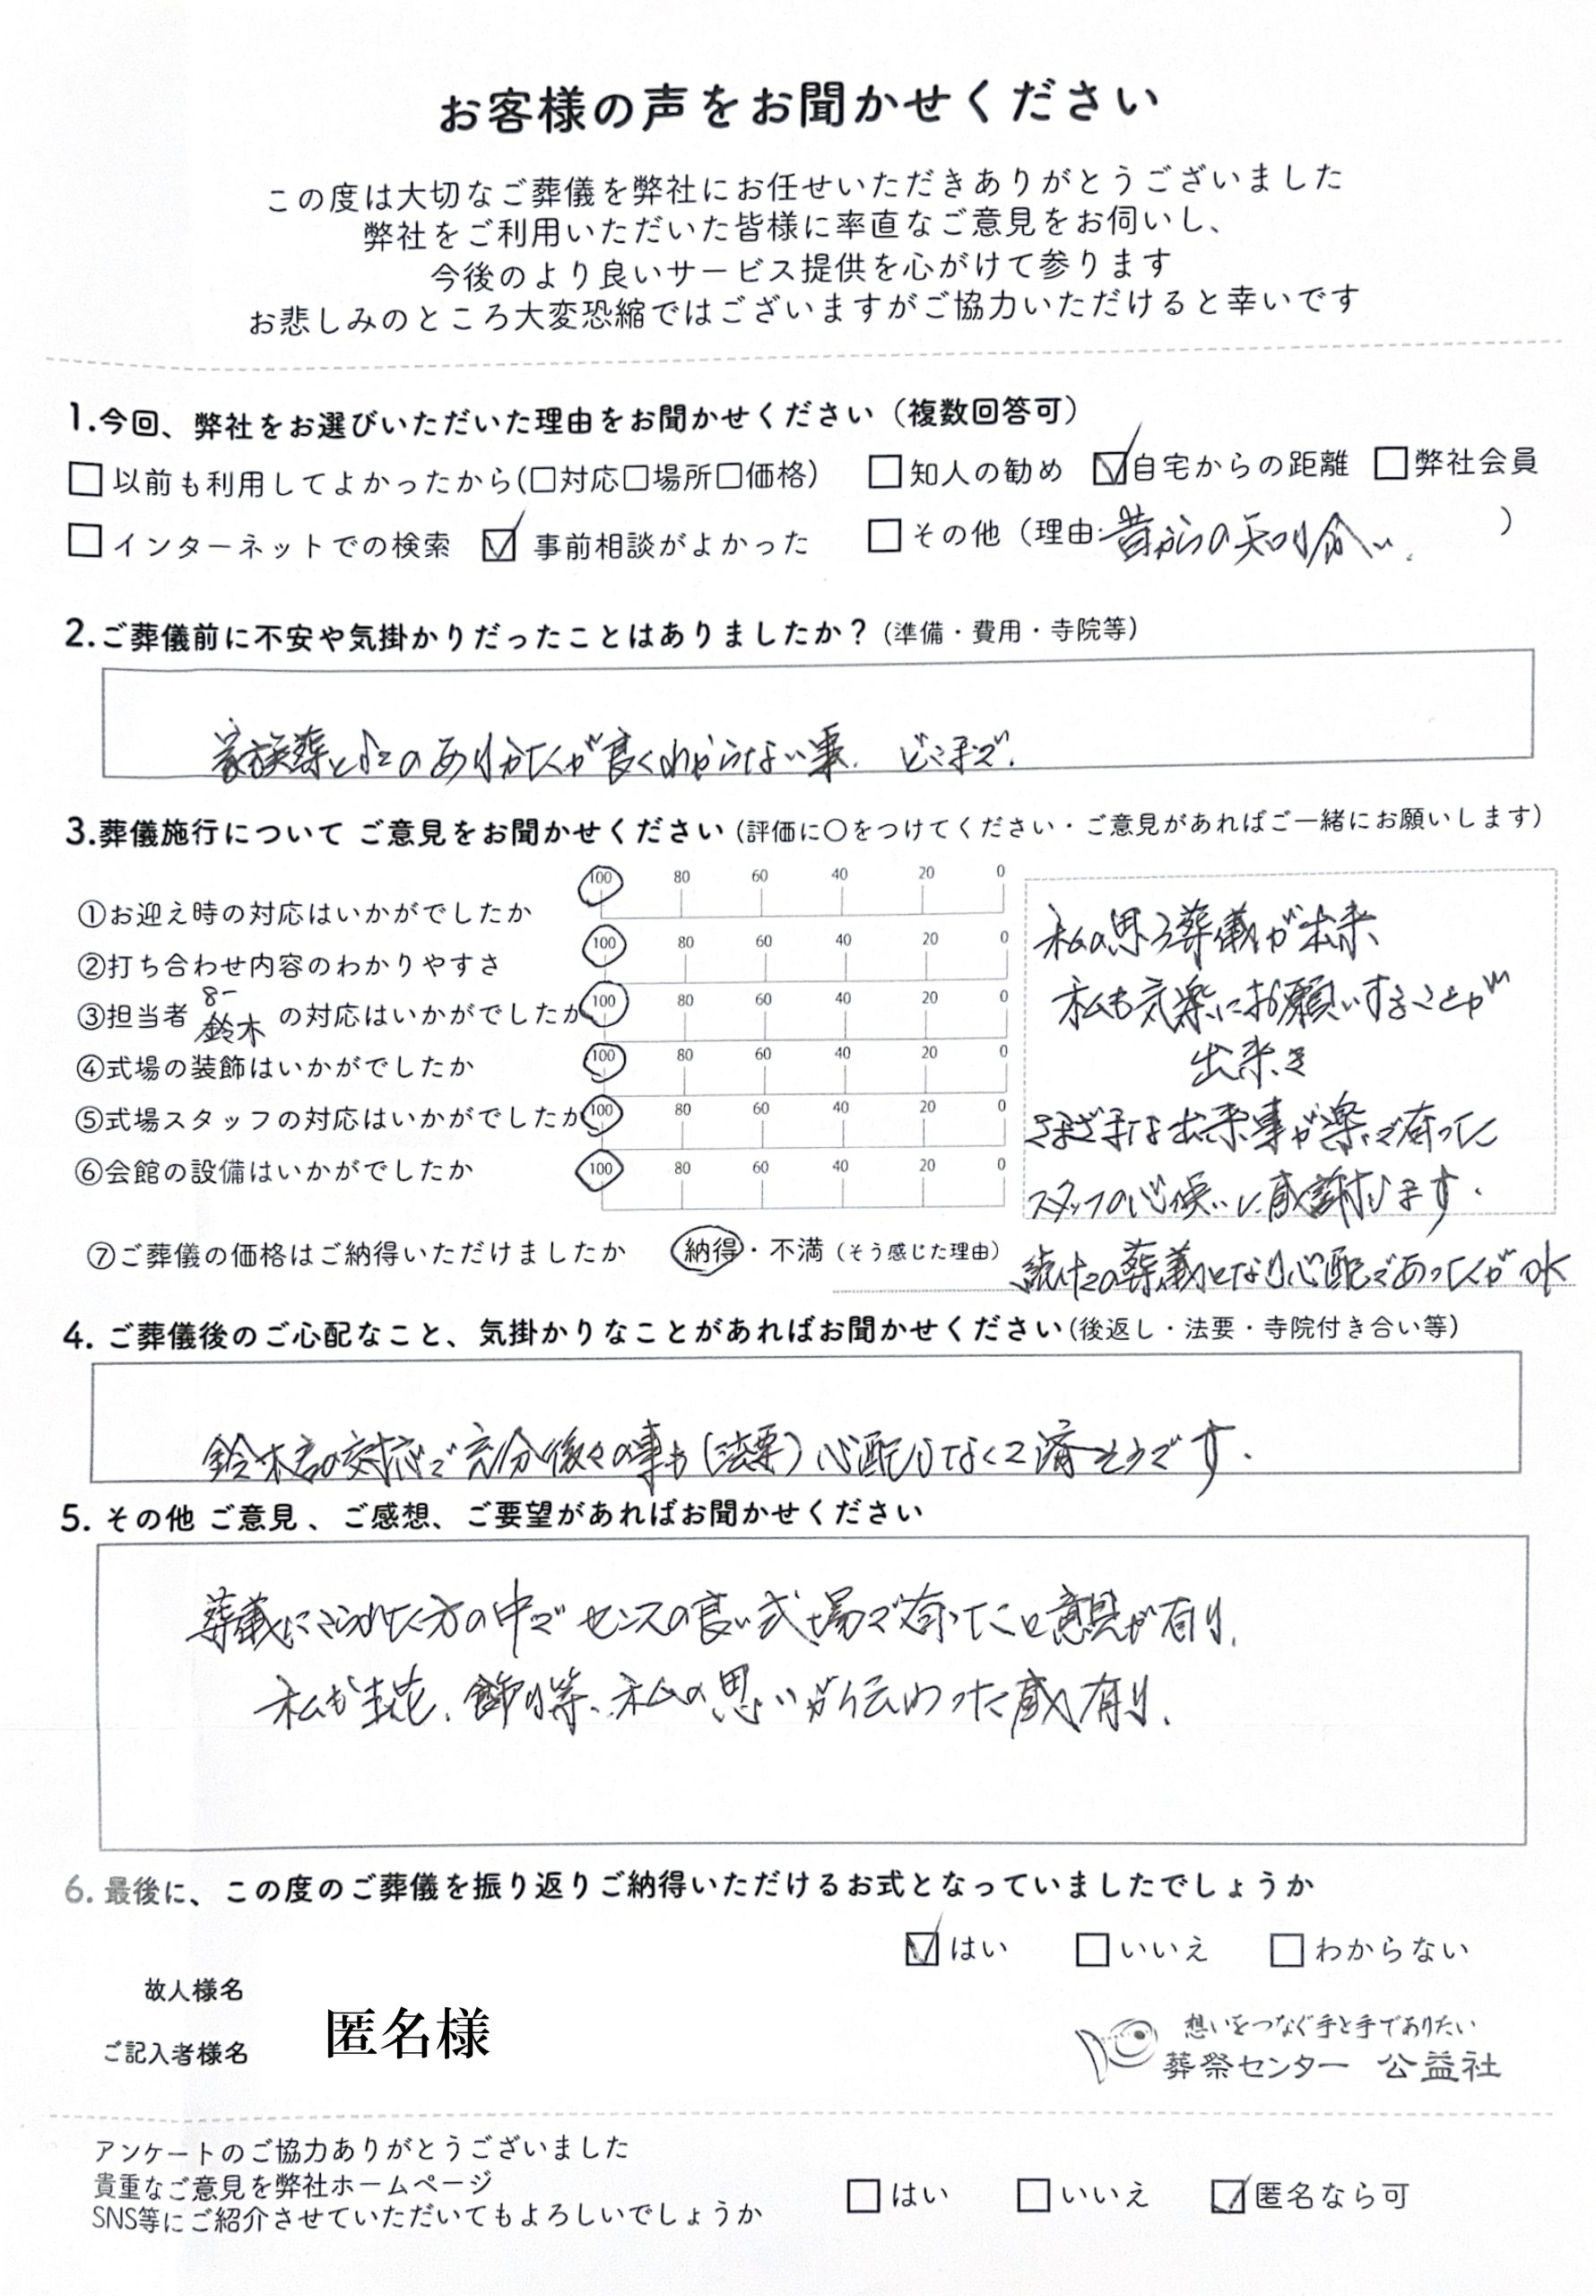 お客様の声をお聞かせください
この度は大切なご葬儀を弊社にお任せいただきありがとうございました
弊社をご利用いただいた皆様に率直なご意見をお伺いし、
今後のより良いサービス提供を心がけて参ります
お悲しみのところ大変恐縮ではございますがご協力いただけると幸いです
1.今回、弊社をお選びいただいた理由をお聞かせください（複数回答可）
□以前も利用してよかったから(□対応□場所□価格) □知人の勧め ☑自宅からの距離 □弊社会員
□インターネットでの検索 ☑事前相談がよかった □その他（理由:昔からの知り合い. ）
2.ご葬儀前に不安や気掛かりだったことはありましたか？(準備・費用・寺院等)
家族葬としてのありかたが良くわからない事. どこまで.
3.葬儀施行について ご意見をお聞かせください(評価に〇をつけてください・ご意見があればご一緒にお願いします)
①お迎え時の対応はいかがでしたか 100 80 60 40 20 0
②打ち合わせ内容のわかりやすさ 100 80 60 40 20 0
③担当者 鈴木 の対応はいかがでしたか 100 80 60 40 20 0
④式場の装飾はいかがでしたか 100 80 60 40 20 0
⑤式場スタッフの対応はいかがでしたか 100 80 60 40 20 0
⑥会館の設備はいかがでしたか 100 80 60 40 20 0
私の思う葬儀が出来
私も気楽にお願いすることが
出来き
さまざまな出来事が楽で有った
スタッフの心使いに感謝します.
⑦ご葬儀の価格はご納得いただけましたか 納得・不満（そう感じた理由）
続けての葬儀となり心配であったが
4. ご葬儀後のご心配なこと、気掛かりなことがあればお聞かせください(後返し・法要・寺院付き合い等)
鈴木君の対応で充分後々の事も(法要)心配しなくて済そうです.
5. その他 ご意見、ご感想、ご要望があればお聞かせください
葬儀にこられた方の中でセンスの良い式場で有ったこと意見が有り.
私が生花、飾り等、私の思いが伝わった感有り.
6. 最後に、この度のご葬儀を振り返りご納得いただけるお式となっていましたでしょうか
☑はい □いいえ □わからない
故人様名
ご記入者様名 匿名様
想いをつなぐ手と手でありたい
葬祭センター 公益社
アンケートのご協力ありがとうございました
貴重なご意見を弊社ホームページ
SNS等にご紹介させていただいてもよろしいでしょうか
□はい □いいえ ☑匿名なら可